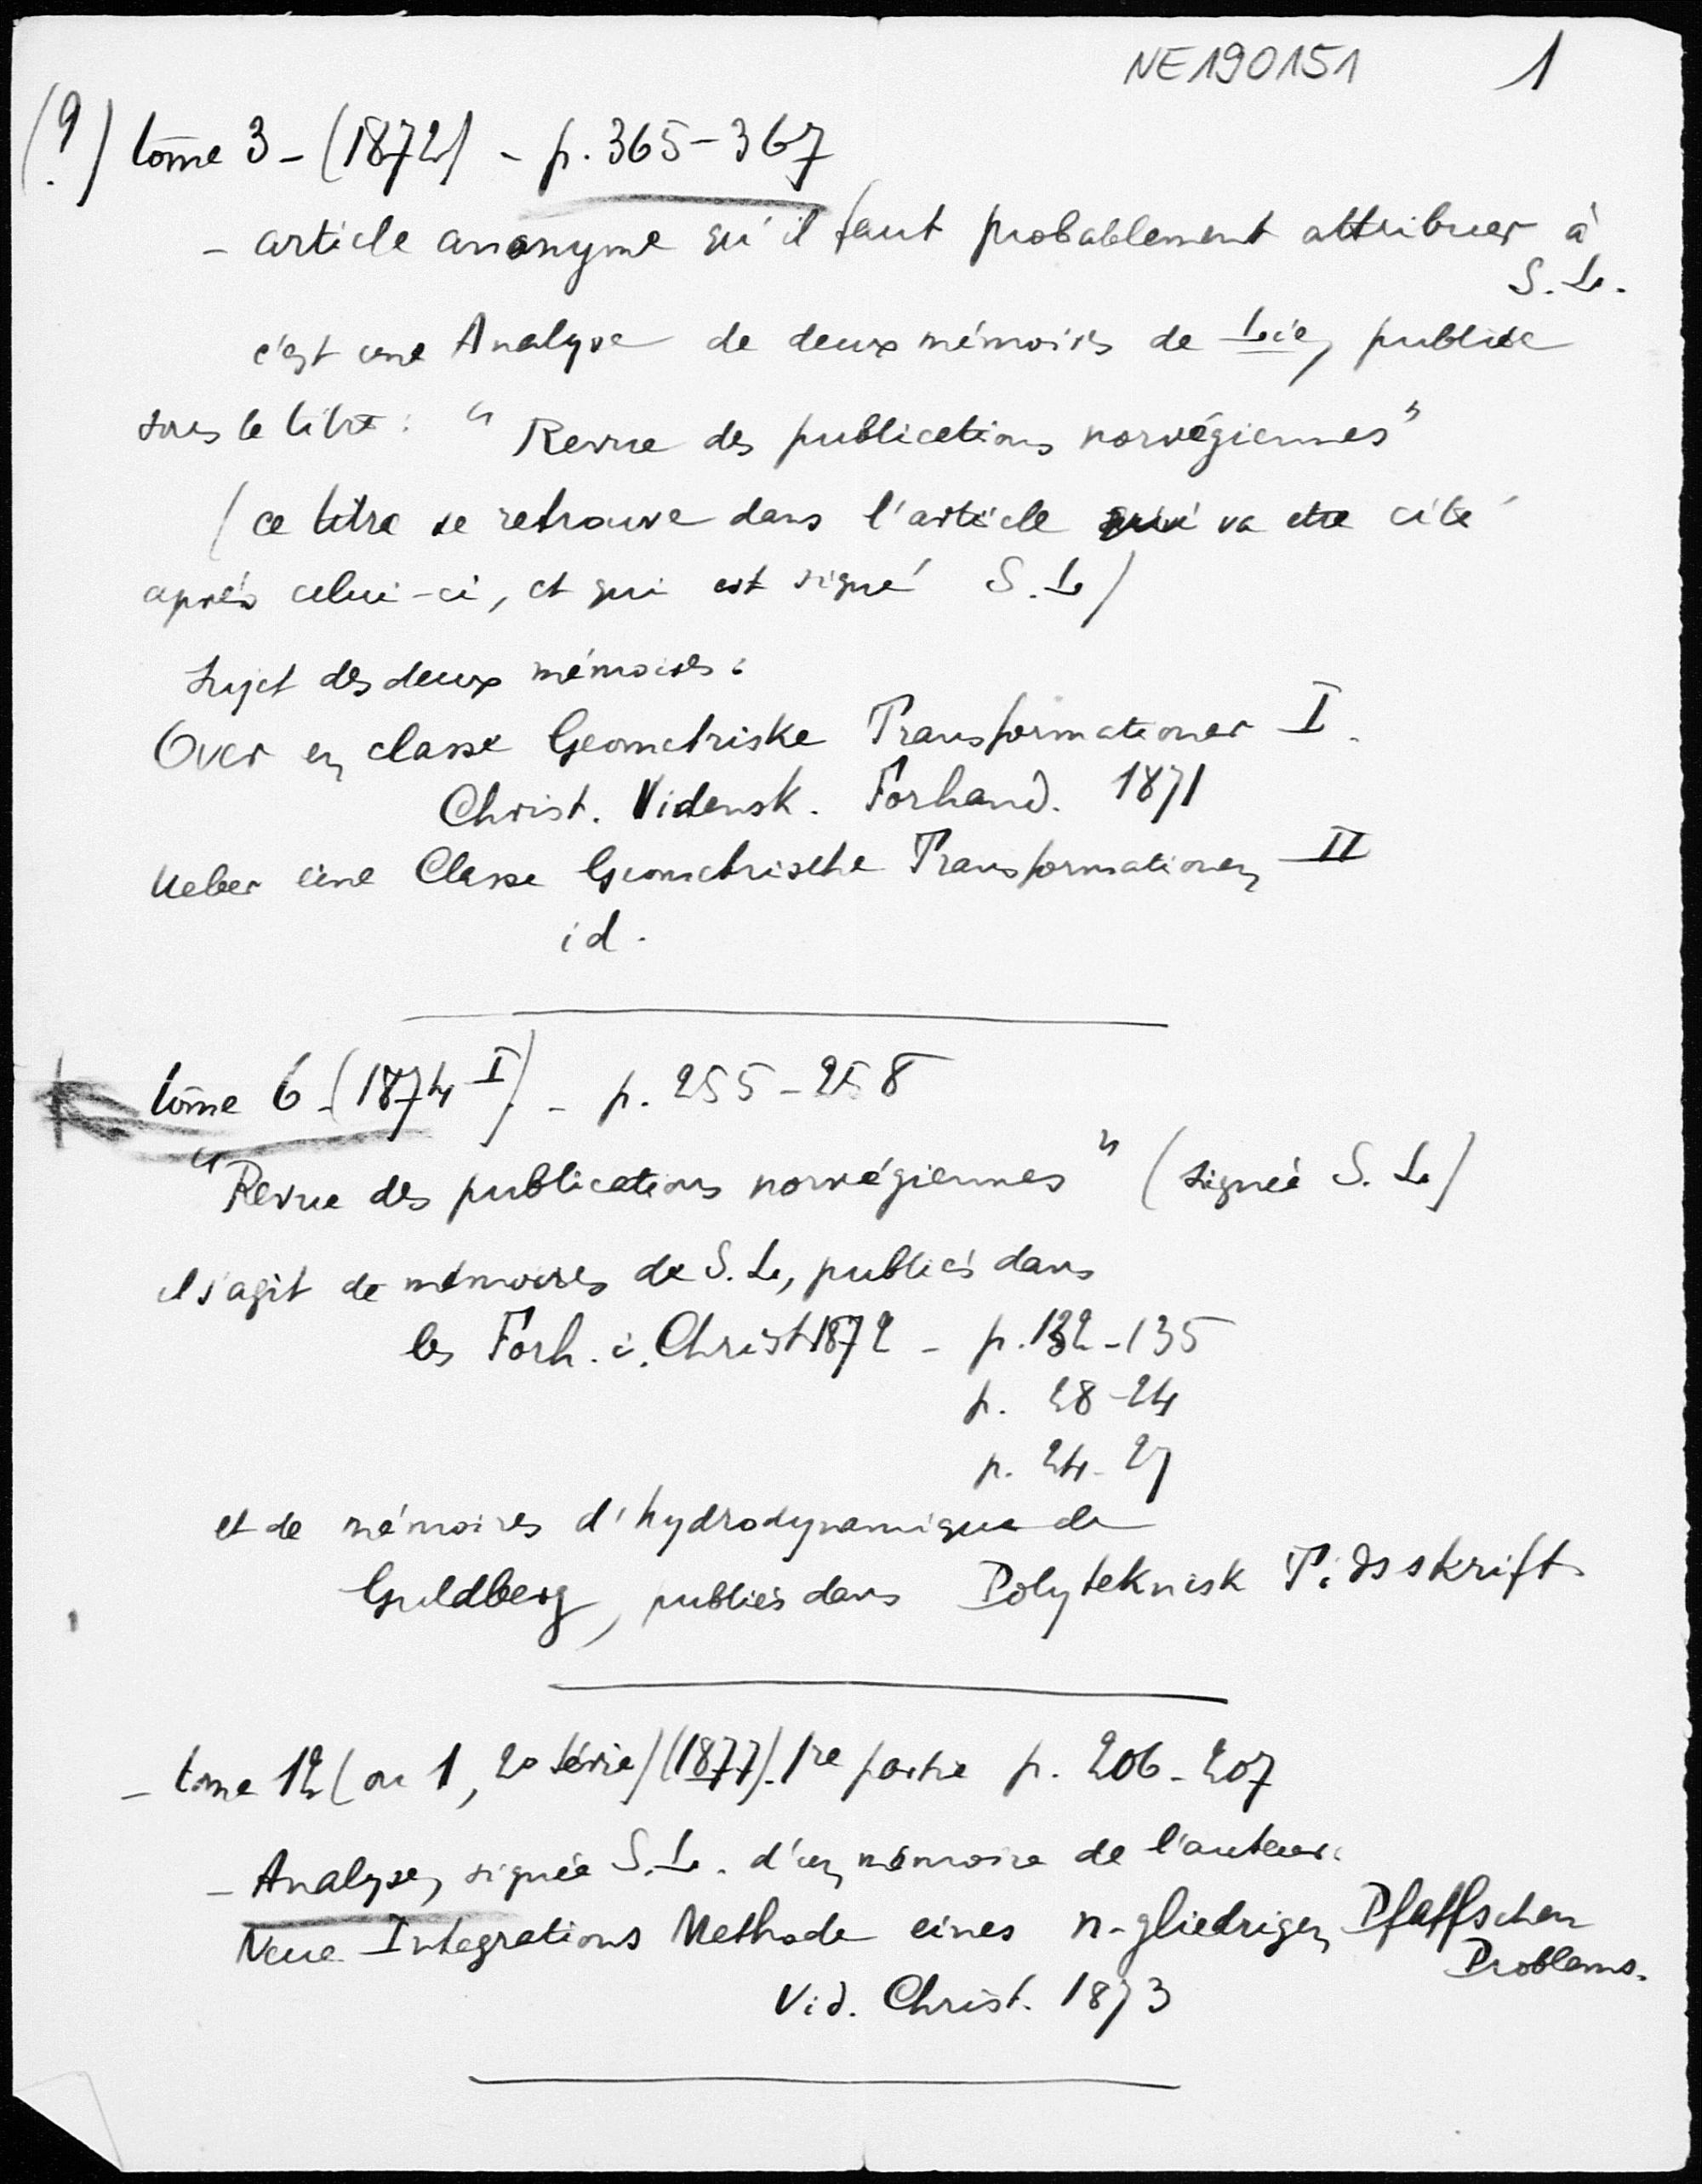 NE190151 1
(?) tome 3 - (1872) - p. 365-367
- article anonyme qu'il faut probablement attribuer à
S. L.
c'est une Analyse de deux mémoires de Lie, publiée
sous le titre : "Revue des publications norvégiennes"
(ce titre se retrouve dans l'article qui va etre cité
après celui-ci, et qui est signé S. L)
Sujet des deux mémoires :
Over en classe Geometriske Transformationer I.
Christ. Vidensk. Forhand. 1871
Ueber eine Classe Geometrische Transformationen II
id.
tome 6 - (1874 I). - p. 255-258
"Revue des publications norvégiennes" (signée S. L)
il s'agit de mémoires de S. L, publiés dans
les Forh. i. Christ 1872 - p. 132-135
p. 28-24
p. 24-27
et de mémoires d'hydrodynamique de
Guldberg, publiés dans Polyteknisk Tidsskrift
- tome 12 (ou 1, 2e série) (1877). 1re partie p. 206-207
- Analyse, signée S. L. d'un mémoire de l'auteur:
Neue Integrations Methode eines n-gliedrigen Pfaffschen
Problems.
Vid. Christ. 1873